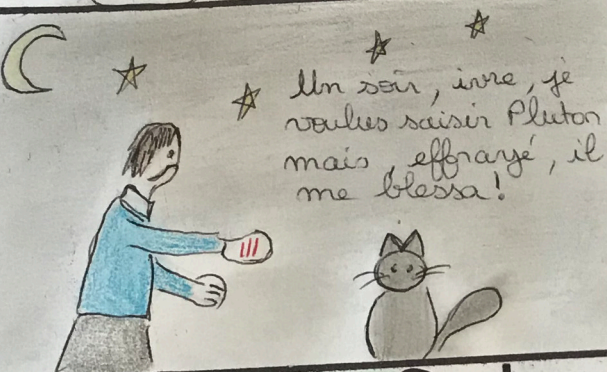 Un soir, ivre, je
voulus saisir Pluton
mais, effrayé, il
me blessa!